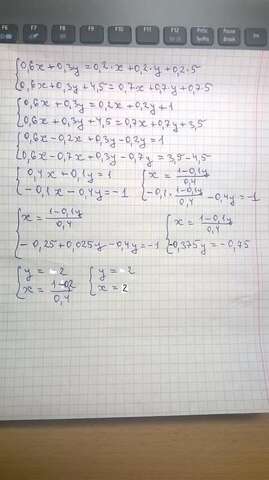 F9 F10 F11 F12 PrtSc SysRq Pause Break
{0,6x+0,3y=0,2·x+0,2·y+0,2·5
0,6x+0,3y+4,5=0,7x+0,7y+0,7·5
{0,6x+0,3y=0,2x+0,2y+1
0,6x+0,3y+4,5=0,7x+0,7y+3,5
{0,6x-0,2x+0,3y-0,2y=1
0,6x-0,7x+0,3y-0,7y=3,5-4,5
{0,4x+0,1y=1 {x=\frac{1-0,1y}{0,4}
-0,1x-0,4y=-1 -0,1·\frac{1-0,1y}{0,4}-0,4y=-1
{x=\frac{1-0,1y}{0,4} {x=\frac{1-0,1y}{0,4}
-0,25+0,025y-0,4y=-1 -0,375y=-0,75
{y=2 {y=2
x=\frac{1-0,2}{0,4} x=2